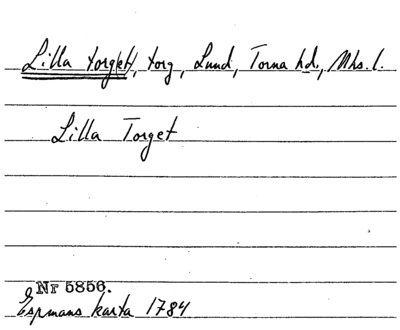 Lilla torg(et), torg, Lund, Torna hd., Mhs. l.
Lilla Torget
Nr 5856.
Espmans karta 1784